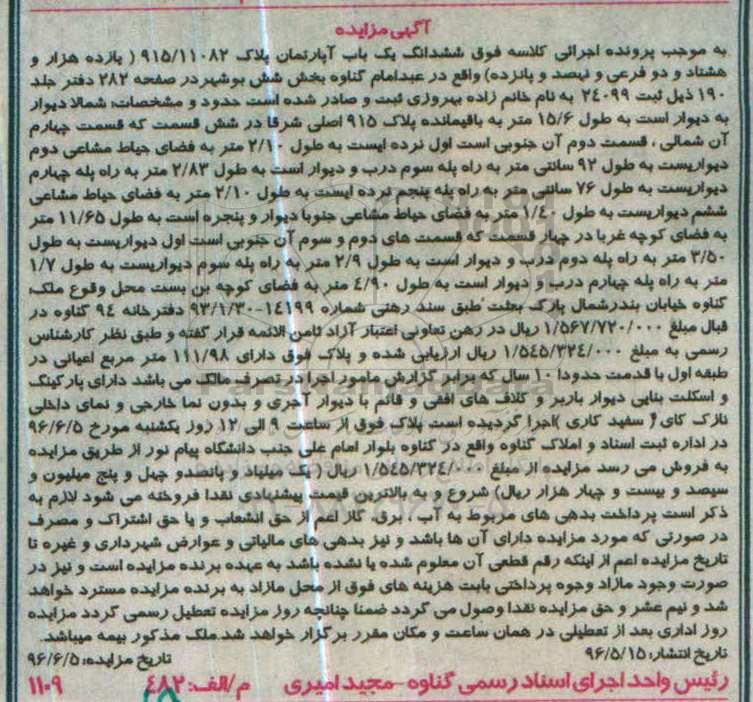 آگهی مزایده
به موجب پرونده اجرائی کلاسه فوق ششدانگ یک باب آپارتمان پلاک ۹۱۵/۱۱۰۸۲ ( یازده هزار و
هشتاد و دو فرعی و نهصد و پانزده) واقع در عبدامام گناوه بخش شش بوشهر در صفحه ۲۸۲ دفتر جلد
۱۹۰ ذیل ثبت ۲۴۰۹۹ به نام خانم زاده بهروزی ثبت و صادر شده است حدود و مشخصات: شمالا دیوار
به دیوار است به طول ۱۵/۶ متر به باقیمانده پلاک ۹۱۵ اصلی شرقا در شش قسمت که قسمت چهارم
آن شمالی ، قسمت دوم آن جنوبی است اول نرده ایست به طول ۲/۱۰ متر به فضای حیاط مشاعی دوم
دیواریست به طول ۹۲ سانتی متر به راه پله سوم درب و دیوار است به طول ۲/۸۳ متر به راه پله چهارم
دیواریست به طول ۷۶ سانتی متر به راه پله پنجم نرده ایست به طول ۲/۱۰ متر به فضای حیاط مشاعی
ششم دیواریست به طول ۱/۴۰ متر به فضای حیاط مشاعی جنوبا دیوار و پنجره است به طول ۱۱/۶۵ متر
به فضای کوچه غربا در چهار قسمت که قسمت های دوم و سوم آن جنوبی است اول دیواریست به طول
۳/۵۰ متر به راه پله دوم درب و دیوار است به طول ۲/۹ متر به راه پله سوم دیواریست به طول ۱/۷
متر به راه پله چهارم درب و دیوار است به طول ۴/۹۰ متر به فضای کوچه بن بست محل وقوع ملک:
گناوه خیابان بندرشمال پارک بعثت طبق سند رهنی شماره ۱۴۱۹۹-۹۳/۱/۳۰ دفترخانه ۹۴ گناوه در
قبال مبلغ ۱/۵۶۷/۷۲۰/۰۰۰ ریال در رهن تعاونی اعتبار آزاد ثامن الائمه قرار گفته و طبق نظر کارشناس
رسمی به مبلغ ۱/۵۴۵/۳۲۴/۰۰۰ ریال ارزیابی شده و پلاک فوق دارای ۱۱۱/۹۸ متر مربع اعیانی در
طبقه اول با قدمت حدودا ۱۰ سال که برابر گزارش مامور اجرا در تصرف مالک می باشد دارای پارکینگ
و اسکلت بنایی دیوار باربر و کلاف های افقی و قائم با دیوار آجری و بدون نما خارجی و نمای داخلی
نازک کای ( سفید کاری )اجرا گردیده است پلاک فوق از ساعت ۹ الی ۱۲ روز یکشنبه مورخ ۹۶/۶/۵
در اداره ثبت اسناد و املاک گناوه واقع در گناوه بلوار امام علی جنب دانشگاه پیام نور از طریق مزایده
به فروش می رسد مزایده از مبلغ ۱/۵۴۵/۳۲۴/۰۰۰ ریال ( یک میلیاد و پانصدو چهل و پنج میلیون و
سیصد و بیست و چهار هزار ریال) شروع و به بالاترین قیمت پیشنهادی نقدا فروخته می شود لازم به
ذکر است پرداخت بدهی های مربوط به آب ، برق، گاز اعم از حق انشعاب و یا حق اشتراک و مصرف
در صورتی که مورد مزایده دارای آن ها باشد و نیز بدهی های مالیاتی و عوارض شهرداری و غیره تا
تاریخ مزایده اعم از اینکه رقم قطعی آن معلوم شده یا نشده باشد به عهده برنده مزایده است و نیز در
صورت وجود مازاد وجوه پرداختی بابت هزینه های فوق از محل مازاد به برنده مزایده مسترد خواهد
شد و نیم عشر و حق مزایده نقدا وصول می گردد ضمنا چنانچه روز مزایده تعطیل رسمی گردد مزایده
روز اداری بعد از تعطیلی در همان ساعت و مکان مقرر برگزار خواهد شد.ملک مذکور بیمه میباشد.
تاریخ انتشار: ۹۶/۵/۱۵ تاریخ مزایده: ۹۶/۶/۵
رئیس واحد اجرای اسناد رسمی گناوه -مجید امیری م/الف: ۴۸۲ ۱۱۰۹